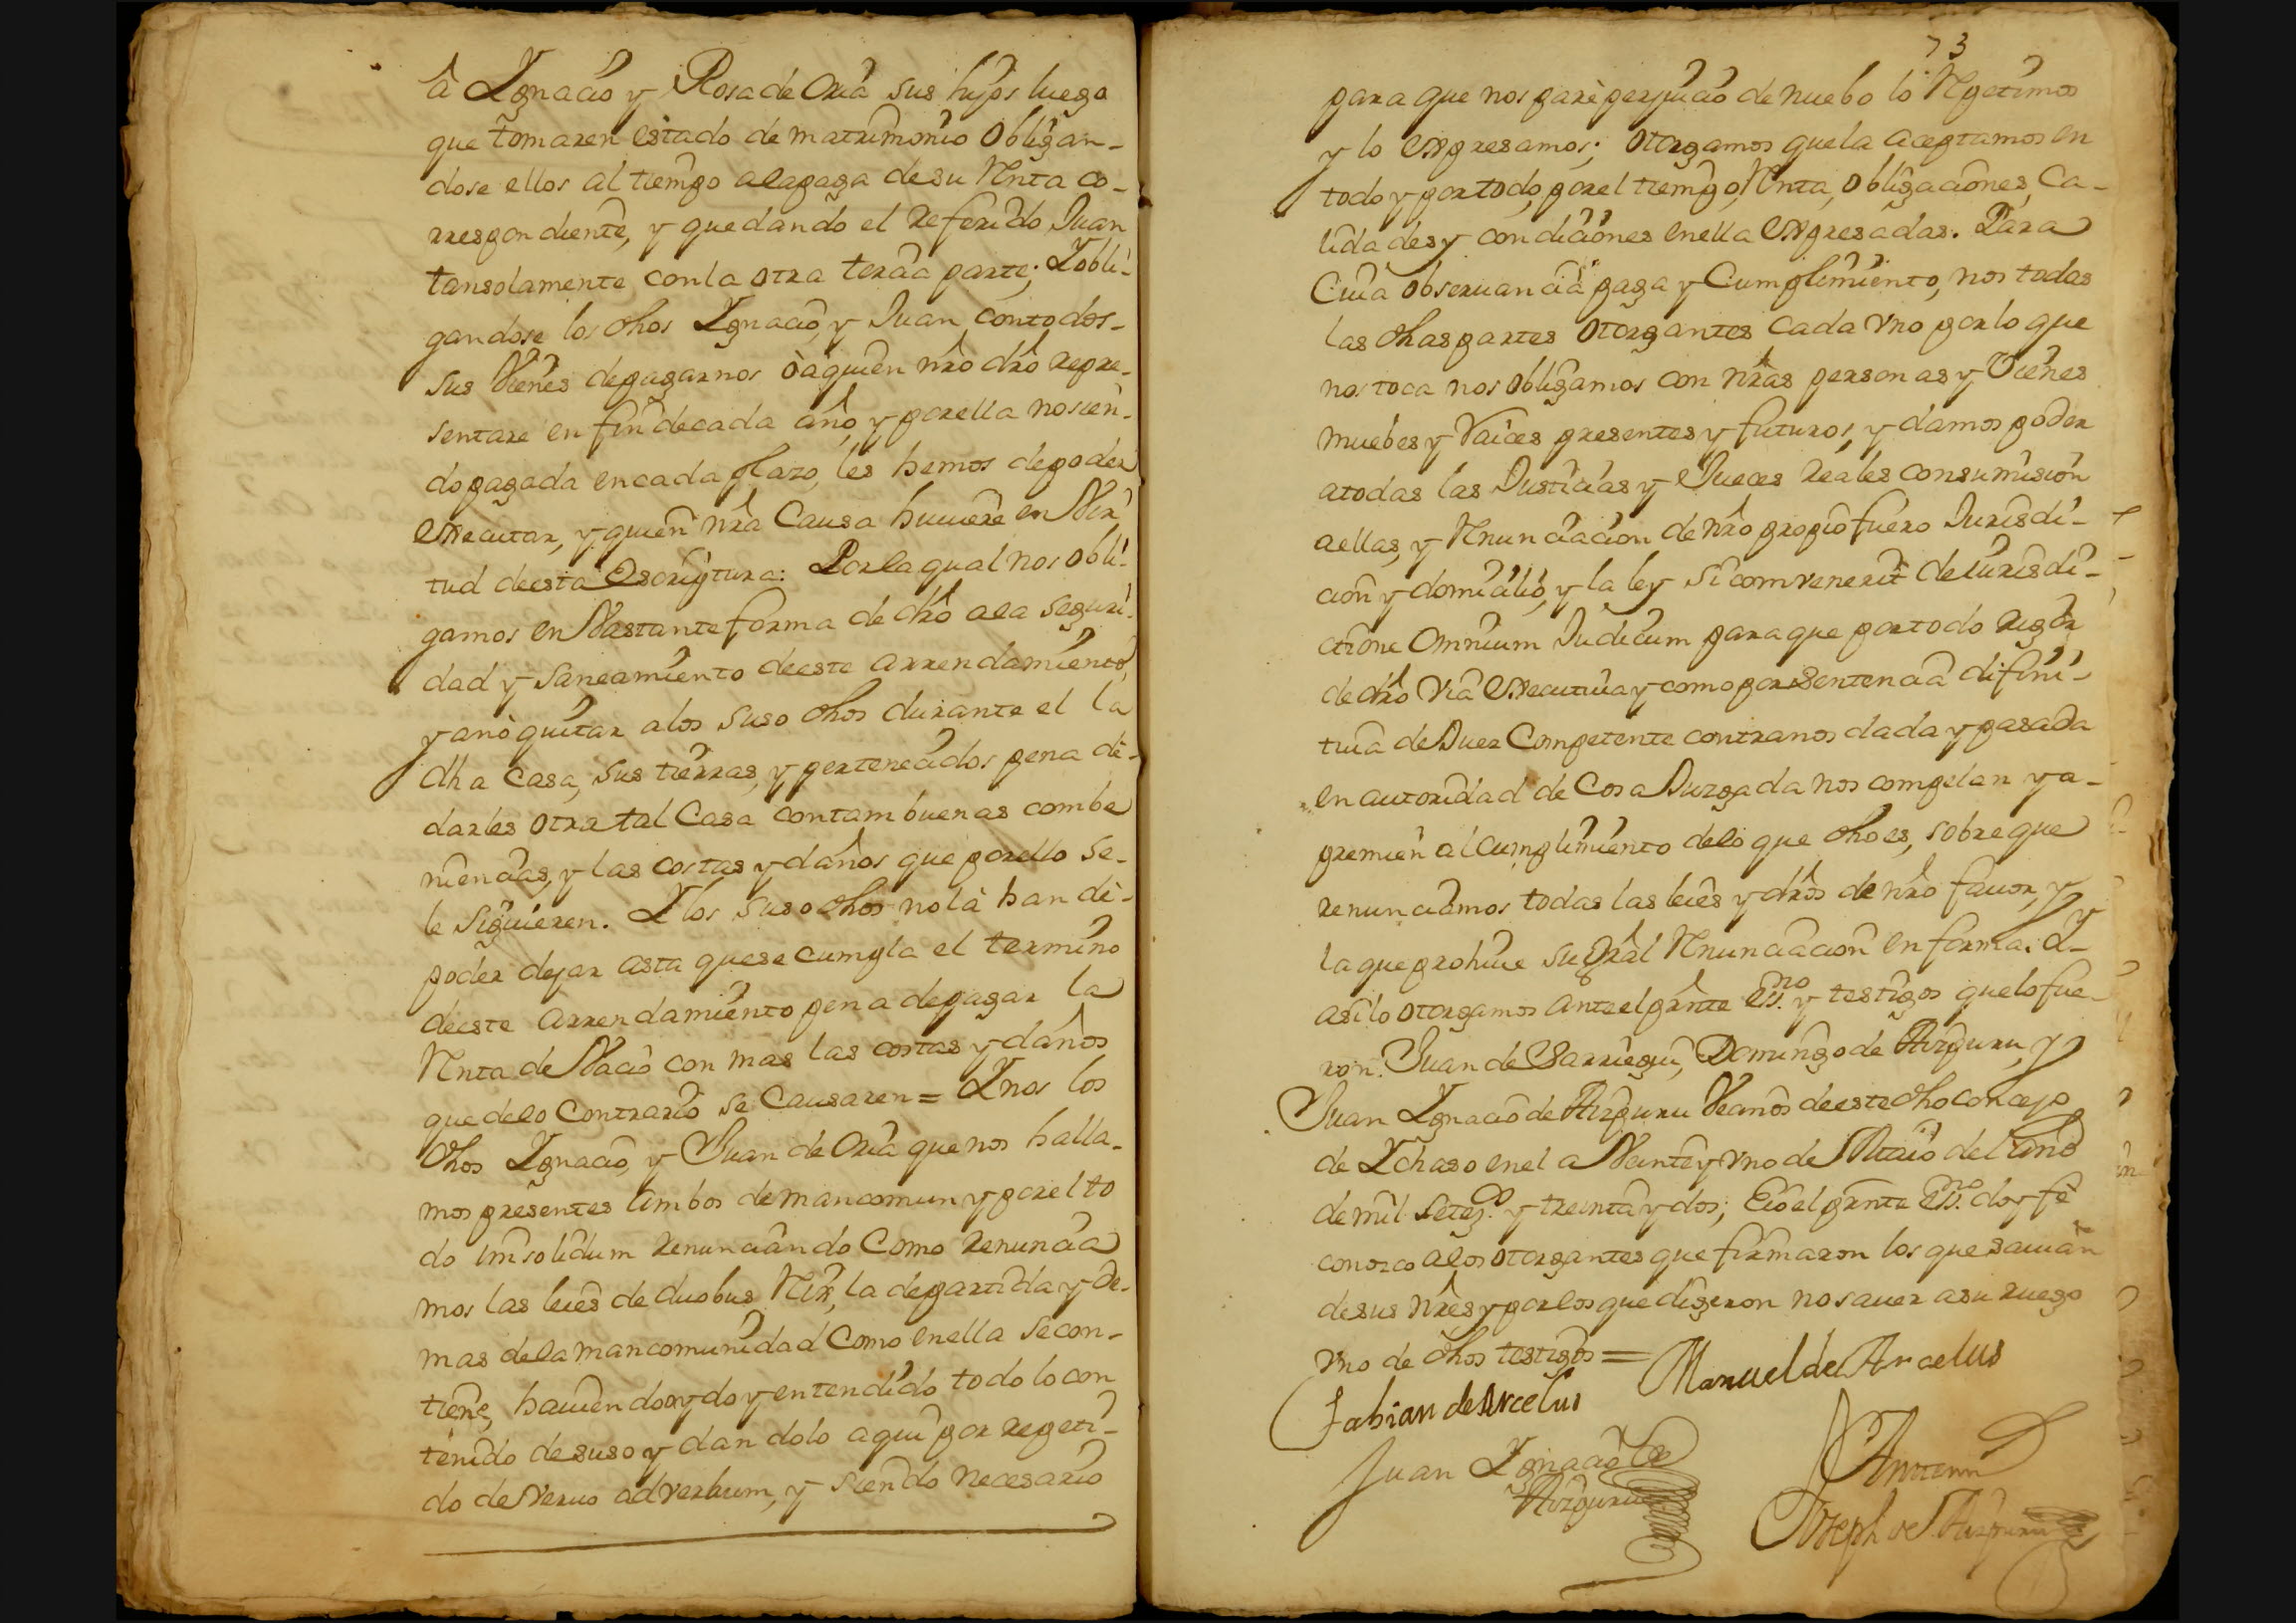 â Ygnacio y Rosa de Oria sus hijos luego
que tomaren estado de matrimonio obligan-
dose ellos al tiempo ala paga de su Renta co-
rrespondiente, y quedando el referido Juan
tansolamente con la otra tercia parte; Y obli-
gandose los dhos Ygnacio, y Juan con todos-
sus Vienes de pagarnos ò à quien nrô drô repre-
sentare en fin de cada año, y por ella no sien-
do pagada en cada plazo, les hemos de poder
executar, y quien nrâ Causa huuiere en Vir-
tud de esta Escriptura: Por la qual nos obli-
gamos en Vastante forma de drô ala seguri-
dad y saneamiento de este arrendamiento,
y a nò quitar a los suso dhos durante el la
dha Casa, sus tierras, y pertenecidos pena de-
darles otra tal Casa con tam buenas combe
niencias, y las costas y daños que por ello se-
le siguieren. Y los suso dhos no la han de-
poder dejar asta que se cumpla el termino
de este arrendamiento pena de pagar la
Renta de Vacio con mas las costas y daños
que de lo Contrario se Causaren = Y nos los
dhos Ygnacio, y Juan de Oria que nos halla-
mos presentes ambos de mancomun y por el to
do imsolidum renunciando Como renuncia
mos las leies de duobus Rex, la de partida y de-
mas de la mancomunidad Como en ella se con-
tiene, hauiendo oydo y entendido todo lo con
tenido de suso y dandolo aqui por repeti-
do de Veruo ad verbum, y siendo necesario
73
para que nos parè perjuicio de nuebo lo Repetimos
y lo expresamos; otorgamos que la aceptamos en
todo y por todo, por el tiempo, Renta, obligaciones, Ca-
lidades y condiciones en ella expresadas. Para
Cuia obseruancia paga y Cumplimiento, nos todas
las dhas partes otorgantes Cada Vno por lo que
nos toca nos obligamos con nrâs personas y Vienes
muebes y Raices presentes y futuros, y damos poder
a todas las Justicias y Jueces reales con sumision
a ellas, y Renunciacion de nrô propio fuero Jurisdi-
cion y domicilio, y la ley si comvenerit de iurisdi-
ctione omnium Judicum para que por todo rigor
de drô Via executiua y como por sentencia difini-
tiua de Juez Competente contra nos dada y pasada
en autoridad de Cosa Juzgada nos compelan y a-
premien al cumplimiento de lo que dho es, sobre que
renunciamos todas las leies y drôs de nrô fauor, y
la que prohiue su gral Renunciacion en forma. Y
asi lo otorgamos ante el prnte essno. y testigos que lo fue-
ron: Juan de Sarriegui, Domingo de Aizpuru, y
Juan Ygnacio de Aizpuru Vecinos de este dho concejo
de Ychaso en el a Veinte y Vno de Maio del año
de mil setezos. y treinta y dos; E io el prnte essno. doy fe
conozco a los otorgantes que firmaron los que sauian
de sus nrês y por los que digeron no sauer a su ruego
vno de dhos testigos =
Manuel de Arcelus
Fabian de Arcelus
Juan Ygnacio de
Aizpuru
Ante mi
Joseph de Aizpuru